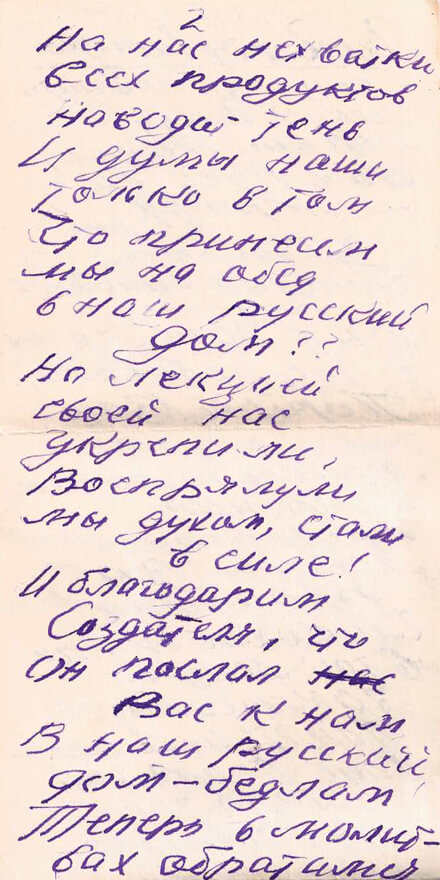 2
На нас нехватки
всех продуктов
наводит тень
И думы наши
только в том
Что принесем
мы на обед
в наш русский
дом??
Но лекцией
своей нас
укрепили,
Воспрянули
мы духом, стали
в силе!
И благодарим
Создателя, что
Он послал нас
Вас к нам
В наш русский
дом-бедлам
Теперь в молит-
вах обратимся